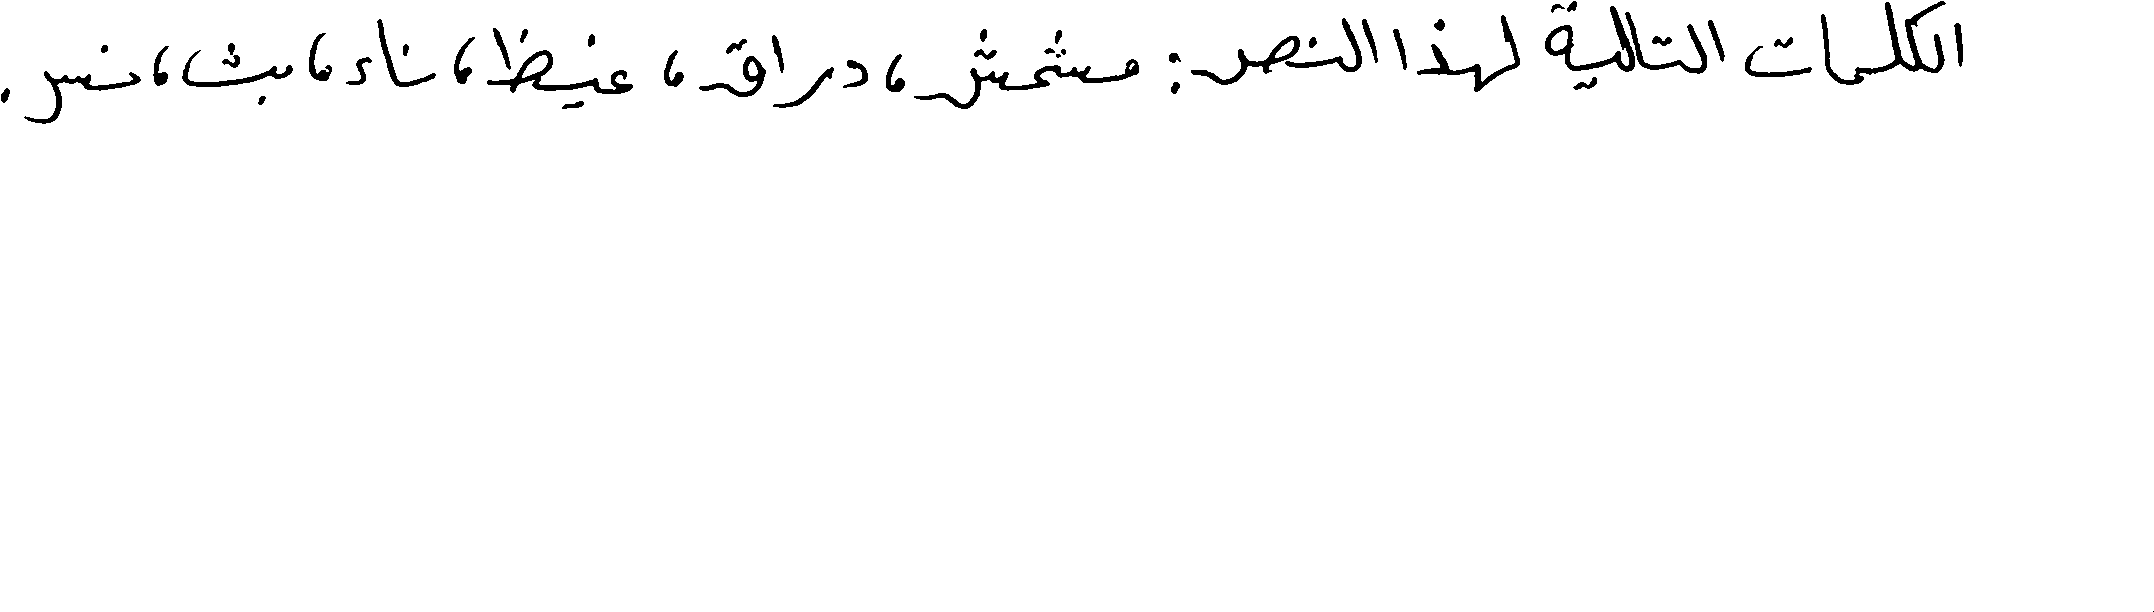 الكلمات التالية لهذا النص: مشمش، دراق، غيظ، ناء، بث، نس.